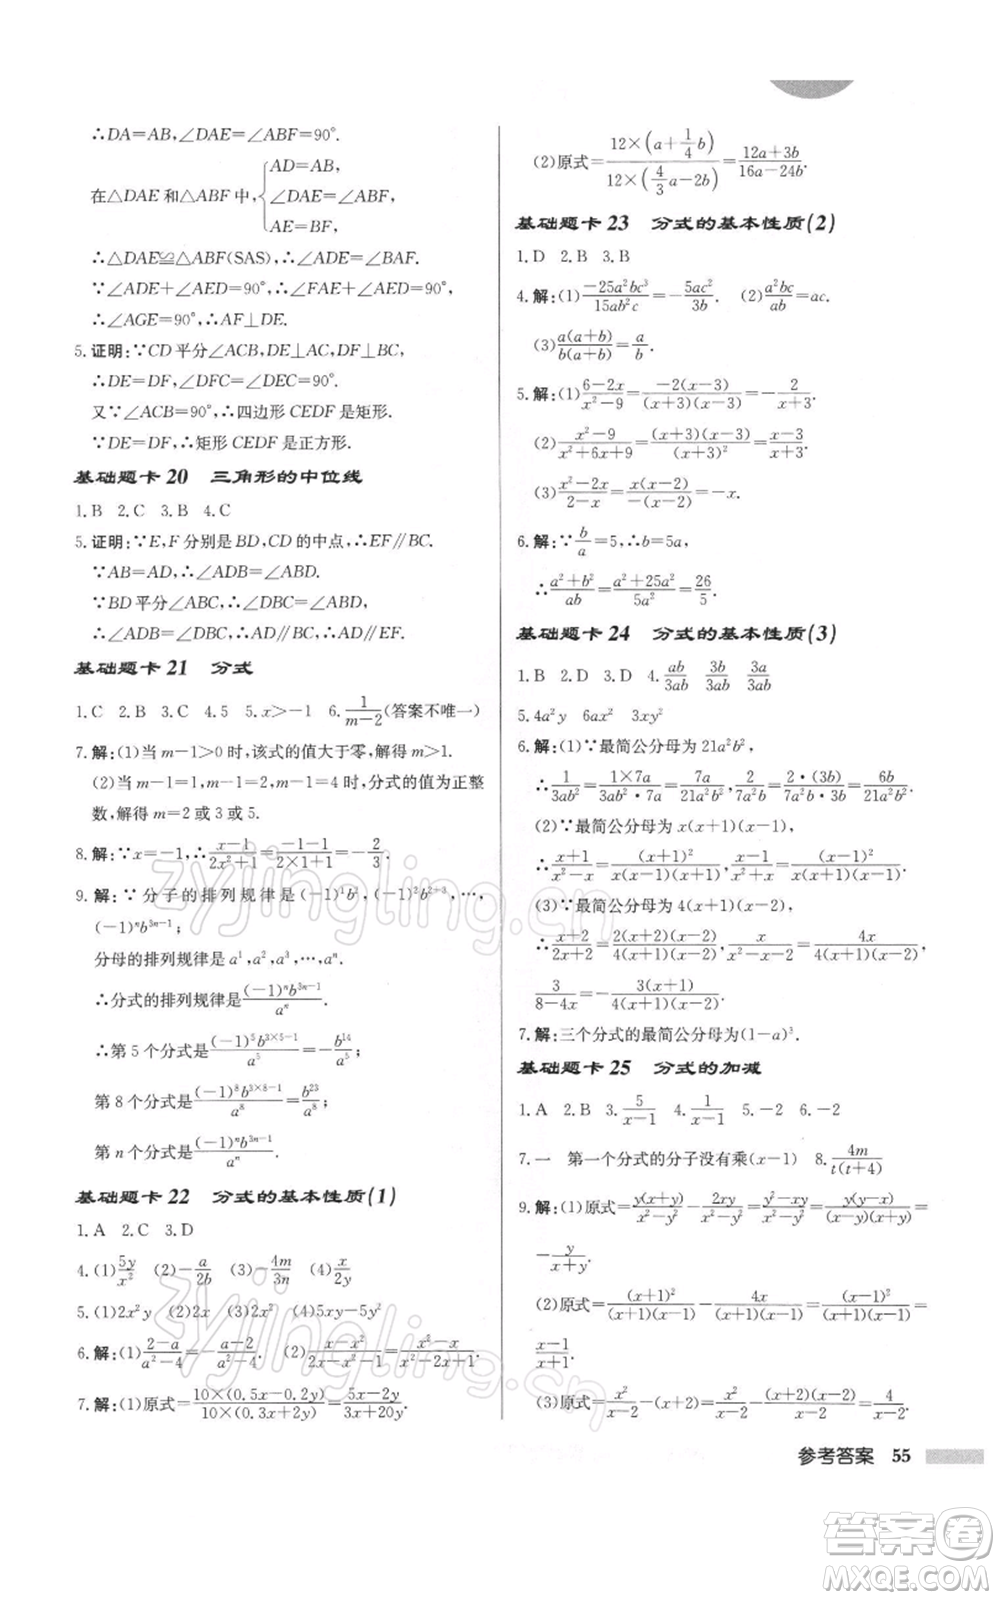 ∴DA=AB,∠DAE=∠ABF=90°.
在△DAE 和△ABF 中,{AD=AB,
∠DAE=∠ABF,
AE=BF,
∴△DAE≌△ABF(SAS),∴∠ADE=∠BAF.
∵∠ADE+∠AED=90°,∴∠FAE+∠AED=90°,
∴∠AGE=90°,∴AF⊥DE.
5.证明:∵CD 平分∠ACB,DE⊥AC,DF⊥BC,
∴DE=DF,∠DFC=∠DEC=90°.
又∵∠ACB=90°,∴四边形 CEDF 是矩形.
∵DE=DF,∴矩形 CEDF 是正方形.
基础题卡 20 三角形的中位线
1.B 2.C 3.B 4.C
5.证明:∵E,F 分别是 BD,CD 的中点,∴EF∥BC.
∵AB=AD,∴∠ADB=∠ABD.
∵BD 平分∠ABC,∴∠ABD=∠DBC,
∴∠ADB=∠DBC,∴AD∥BC,∴AD∥EF.
基础题卡 21 分式
1.C 2.B 3.B 4.5 5.x>-1 6.1/(m-2)(答案不唯一)
7.解:(1)当 m-1>0 时,该式的值大于零,解得 m>1.
(2)当 m-1=1,m-1=2,m-1=4 时,分式的值为正整
数,解得 m=2 或 3 或 5.
8.解:∵x=-1,∴(x-1)/(2x²+1)=(-1-1)/(2×1+1)=-2/3.
9.解:∵分子的排列规律是(-1)¹b²,(-1)²b²⁺³,…,
(-1)ⁿb³ⁿ⁻¹;
分母的排列规律是 a¹,a²,a³,…,aⁿ.
∴分式的排列规律是(-1)ⁿb³ⁿ⁻¹/aⁿ.
∴第 5 个分式是(-1)⁵b³ˣ⁵⁻¹/a⁵=-b¹⁴/a⁵;
第 8 个分式是(-1)⁸b³ˣ⁸⁻¹/a⁸=b²³/a⁸;
第 n 个分式是(-1)ⁿb³ⁿ⁻¹/aⁿ.
基础题卡 22 分式的基本性质(1)
1.A 2.C 3.D
4.(1)5y/x² (2)-a/2b (3)-4m/3n (4)x/2y
5.(1)2x²y (2)2x (3)2x² (4)5xy-5y²
6.解:(1)(2-a)/(a²-4)=-(a-2)/(a²-4). (2)(x-x²)/(2x-x²-1)=(x²-x)/(x²-2x+1).
7.解:(1)原式=10×(0.5x-0.2y)/10×(0.3x+2y)=(5x-2y)/(3x+20y).
(2)原式=12×(a+1/4b)/12×(4/3a-2b)=(12a+3b)/(16a-24b).
基础题卡 23 分式的基本性质(2)
1.D 2.B 3.B
4.解:(1)-25a²bc³/15ab²c=-5ac²/3b. (2)a²bc/ab=ac.
(3)a(a+b)/b(a+b)=a/b.
5.解:(1)(6-2x)/(x²-9)=-2(x-3)/(x+3)(x-3)=-2/(x+3).
(2)(x²-9)/(x²+6x+9)=(x+3)(x-3)/(x+3)²=(x-3)/(x+3).
(3)(x²-2x)/(2-x)=x(x-2)/-(x-2)=-x.
6.解:∵b/a=5,∴b=5a,
∴(a²+b²)/ab=(a²+25a²)/5a²=26/5.
基础题卡 24 分式的基本性质(3)
1.B 2.D 3.D 4.ab/3ab 3b/3ab 3a/3ab
5.4a²y 6ax² 3xy²
6.解:(1)∵最简公分母为 21a²b²,
∴1/3ab²=1×7a/3ab²·7a=7a/21a²b²,2/7a²b=2·(3b)/7a²b·(3b)=6b/21a²b².
(2)∵最简公分母为 x(x+1)(x-1),
∴(x+1)/(x²-x)=(x+1)²/x(x+1)(x-1),(x-1)/(x²+x)=(x-1)²/x(x+1)(x-1).
(3)∵最简公分母为 4(x+1)(x-2),
∴(x+2)/(2x+2)=2(x+2)(x-2)/4(x+1)(x-2),x/(x²-x-2)=4x/4(x+1)(x-2),
3/(8-4x)=-3(x+1)/4(x+1)(x-2).
7.解:三个分式的最简公分母为(1-a)³.
基础题卡 25 分式的加减
1.A 2.B 3.5/(x-1) 4.1/(x-1) 5.-2 6.-2
7.一 第一个分式的分子没有乘(x-1) 8.4m/t(t+4)
9.解:(1)原式=y(x+y)/(x²-y²)-2xy/(x²-y²)=(y²-xy)/(x²-y²)=y(y-x)/(x-y)(x+y)=
-y/(x+y).
(2)原式=(x+1)²/(x+1)(x-1)-4x/(x+1)(x-1)=(x-1)²/(x+1)(x-1)=
(x-1)/(x+1).
(3)原式=x²/(x-2)-(x+2)=x²/(x-2)-(x²-4)/(x-2)=4/(x-2).
参考答案 55
zyjingling.cn
zyjingling.cn
答案卷
MXQE.COM